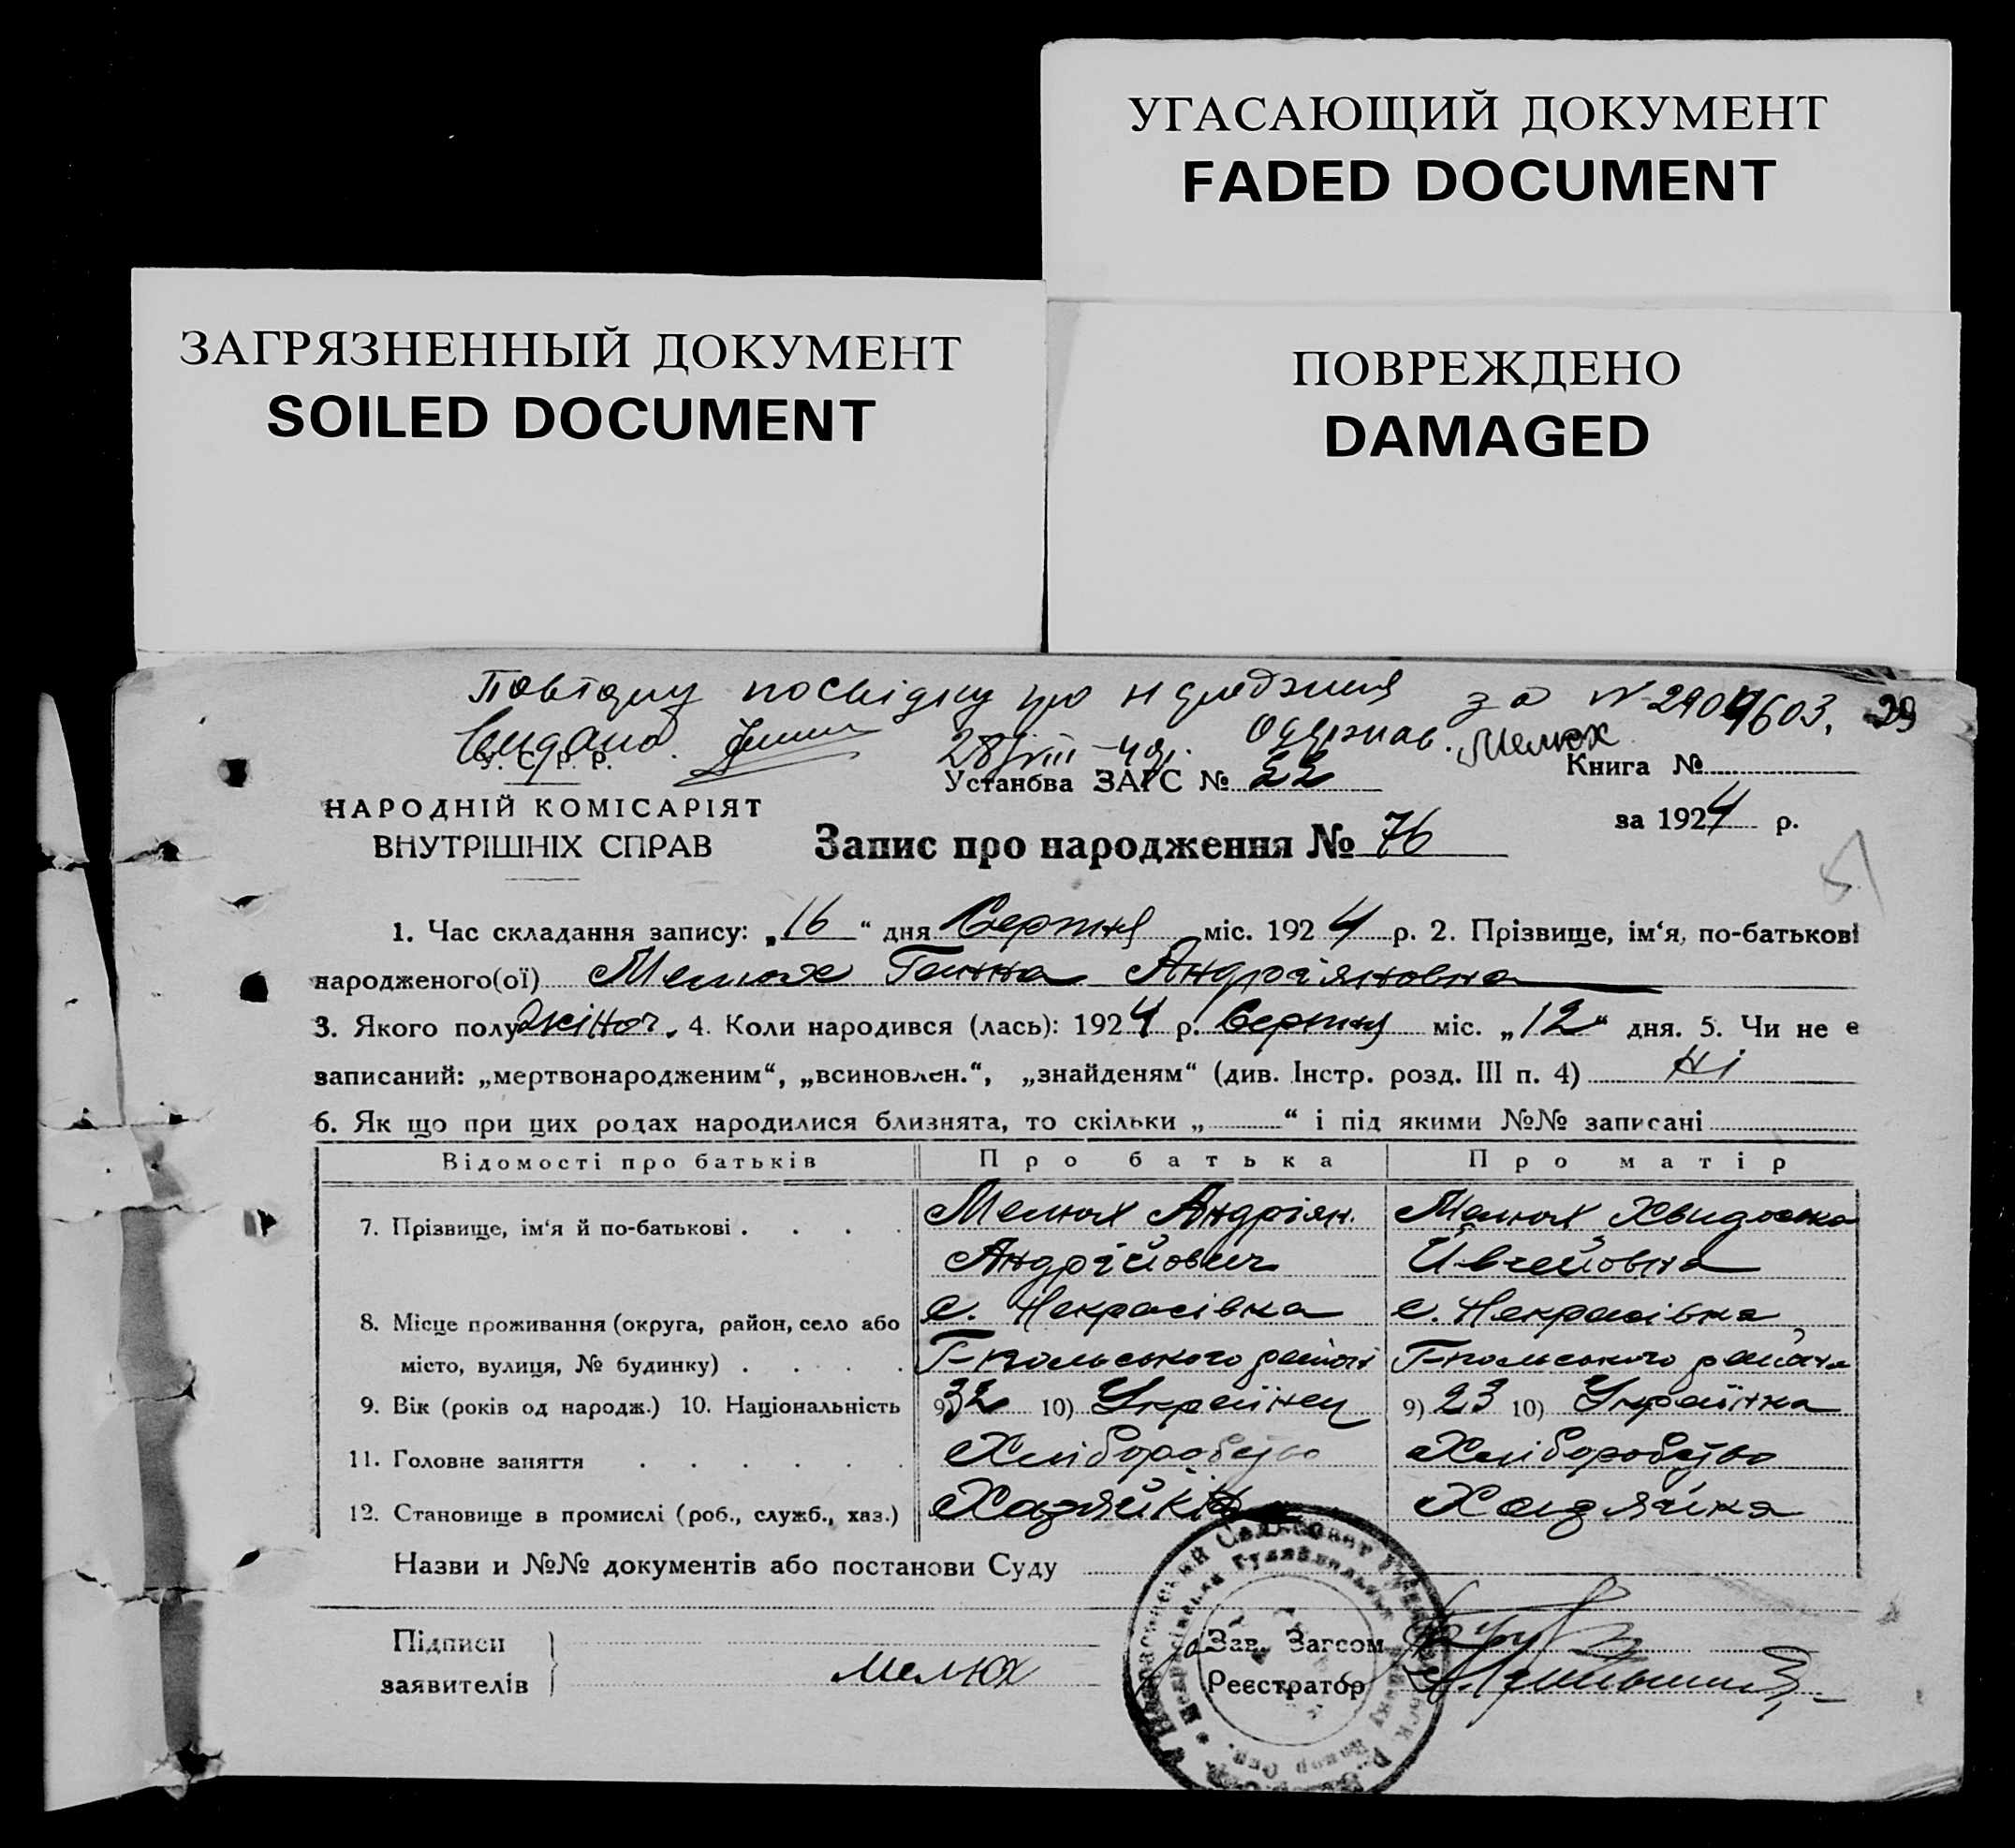 УГАСАЮЩИЙ ДОКУМЕНТ
FADED DOCUMENT
ЗАГРЯЗНЕННЫЙ ДОКУМЕНТ
SOILED DOCUMENT
ПОВРЕЖДЕНО
DAMAGED
Повторну посвідку про народження за № 290 603. 29
Видано. 28/VIII Одержав. Мелюх
У. С. Р. Р.
Установа ЗАГС № 22
Книга №
НАРОДНІЙ КОМІСАРІЯТ
ВНУТРІШНІХ СПРАВ
за 1924 р.
Запис про народження № 76
1. Час складання запису: „16“ дня Серпня міс. 1924 р. 2. Прізвище, ім‘я, по-батькові
народженого(ої) Мелюх Ганна Андріяновна
3. Якого полу жіноч. 4. Коли народився (лась): 1924 р. Серпня міс. „12“ дня. 5. Чи не є
записаний: „мертвонародженим“, „всиновлен.“, „знайденям“ (див. Інстр. розд. III п. 4) Ні
6. Як що при цих родах народилися близнята, то скільки „ “ і під якими №№ записані
Відомості про батьків Про батька Про матір
7. Прізвище, ім‘я й по-батькові . . . . Мелюх Андріян. Мелюх Хвидоська
Андрійович
8. Місце проживання (округа, район, село або с. Некрасівка с. Некрасівка,
місто, вулиця, № будинку) . . . . Г-польського району Г-польського району
9. Вік (років од народж.) 10. Національність 9) 32 10) Українец 9) 23 10) Українка
11. Головне заняття . . . . . . Хліборобство Хліборобство
12. Становище в промислі (роб., служб., хаз.) Хазяйін Хазяйка
Назви и №№ документів або постанови Суду
Підписи
заявителів Мелюх
Зав. Загсом
Реєстратор